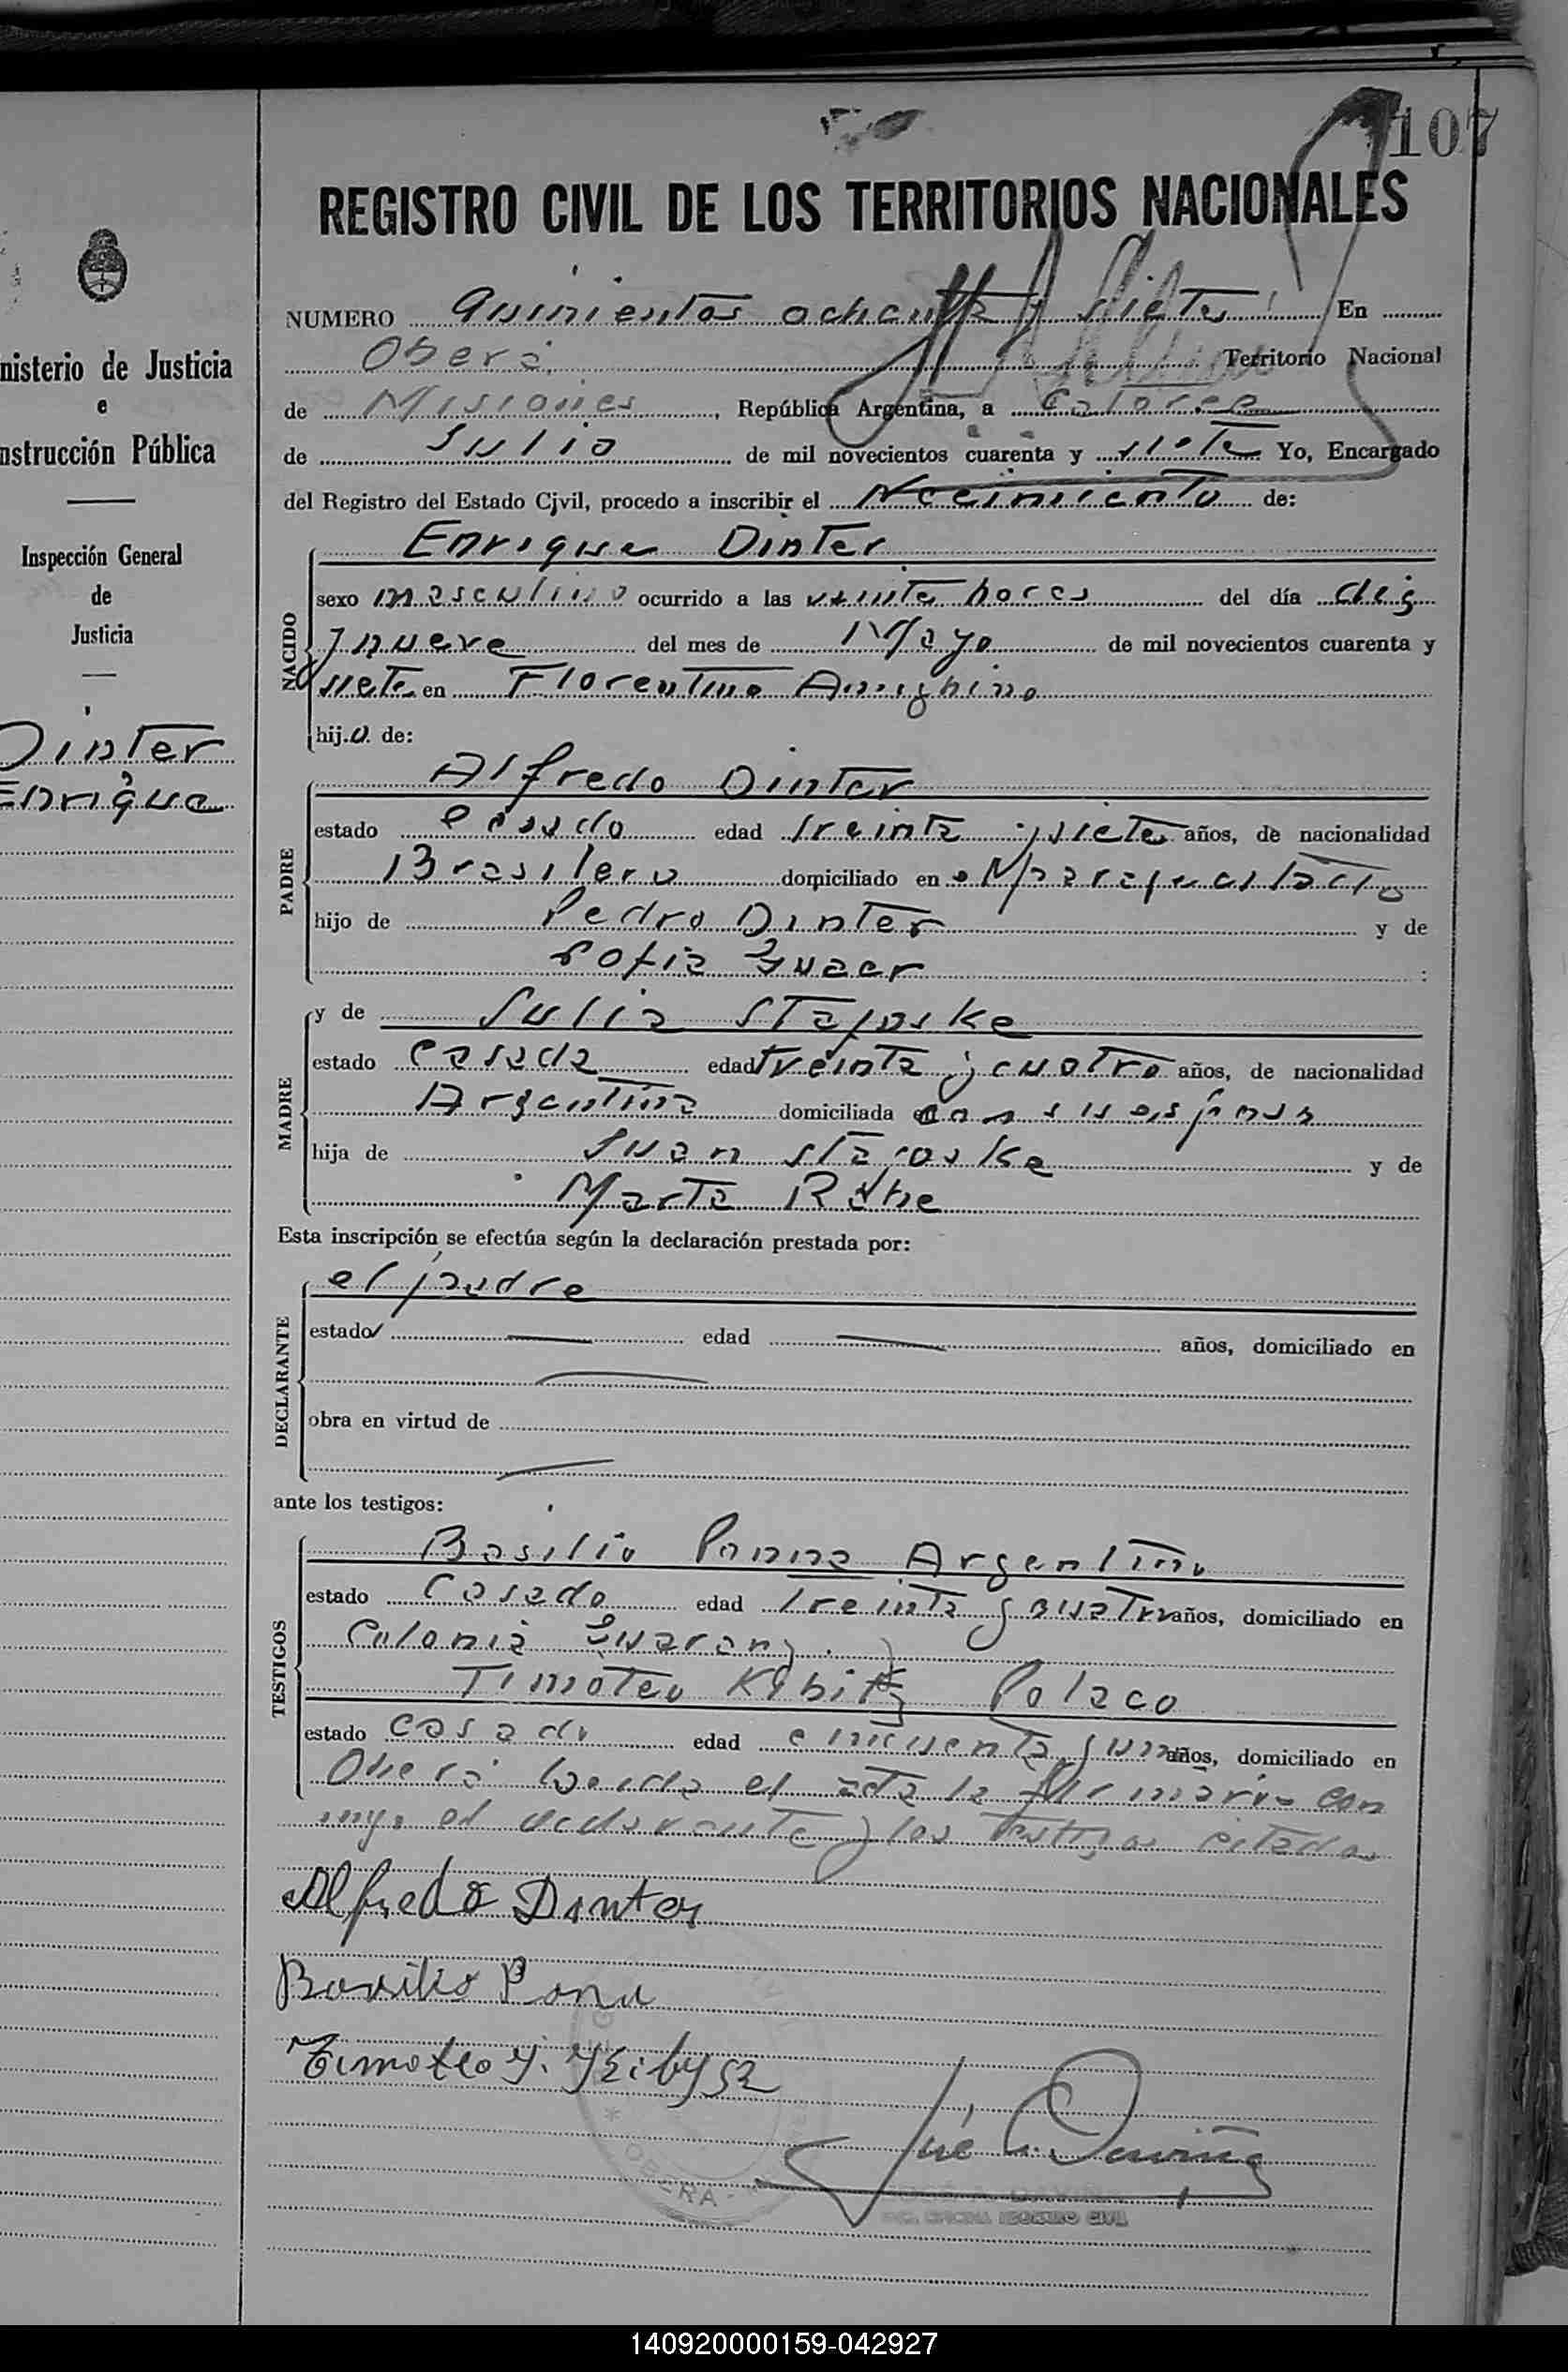 107
REGISTRO CIVIL DE LOS TERRITORIOS NACIONALES
NUMERO Quinientos ochenta y siete En
Oberá, Territorio Nacional
de Misiones, República Argentina, a Catorce
de Julio de mil novecientos cuarenta y siete Yo, Encargado
del Registro del Estado Civil, procedo a inscribir el Nacimiento de:
NACIDO
Enrique Dinter
sexo masculino ocurrido a las veinte horas del día diez
y nueve del mes de Mayo de mil novecientos cuarenta y
siete en Florentino Ameghino
hijo de:
PADRE
Alfredo Dinter
estado casado edad treinta y siete años, de nacionalidad
Brasilero domiciliado en
hijo de Pedro Dinter y de
Sofia
MADRE
y de Julia
estado casada edad treinta y cuatro años, de nacionalidad
Argentina domiciliada con su esposo
hija de Juan y de
Marta
Esta inscripción se efectúa según la declaración prestada por:
DECLARANTE
el padre
estado edad años, domiciliado en
obra en virtud de
ante los testigos:
TESTIGOS
Basilio Panna Argentino
estado Casado edad treinta y cuatro años, domiciliado en
Colonia Guarany.
Timoteo Polaco
estado casado edad cincuenta y un años, domiciliado en
Oberá Leida el acta la firmaron con
migo el declarante y los testigos citados
Alfredo Dinter
Basilio Pana
Timoteo
José
OBERA
REGISTRO CIVIL
nisterio de Justicia
e
nstrucción Pública
Inspección General
de
Justicia
Dinter
Enrique
140920000159-042927